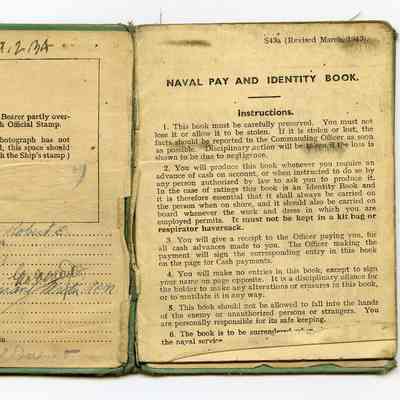 Bearer partly over-
Official Stamp.
hotograph has not
, this space should
h the Ship's stamp.)
S43a (Revised March, 1943).
NAVAL PAY AND IDENTITY BOOK.
Instructions.
1. This book must be carefully preserved. You must not
lose it or allow it to be stolen. If it is stolen or lost, the
facts should be reported to the Commanding Officer as soon
as possible. Disciplinary action will be taken if the loss is
shown to be due to negligence.
2. You will produce this book whenever you require an
advance of cash on account, or when instructed to do so by
any person authorised by law to ask you to produce it.
In the case of ratings this book is an Identity Book and
it is therefore essential that it shall always be carried on
the person when on shore, and it should also be carried on
board whenever the work and dress in which you are
employed permits. It must not be kept in a kit bag or
respirator haversack.
3. You will give a receipt to the Officer paying you, for
all cash advances made to you. The Officer making the
payment will sign the corresponding entry in this book
on the page for Cash payments.
4. You will make no entries in this book, except to sign
your name on page opposite. It is a disciplinary offence for
the holder to make any alterations or erasures in this book, or
to mutilate it in any way.
5. This book should not be allowed to fall into the hands
of the enemy or unauthorized persons or strangers. You
are personally responsible for its safe keeping.
6. The book is to be surrendered
the naval service